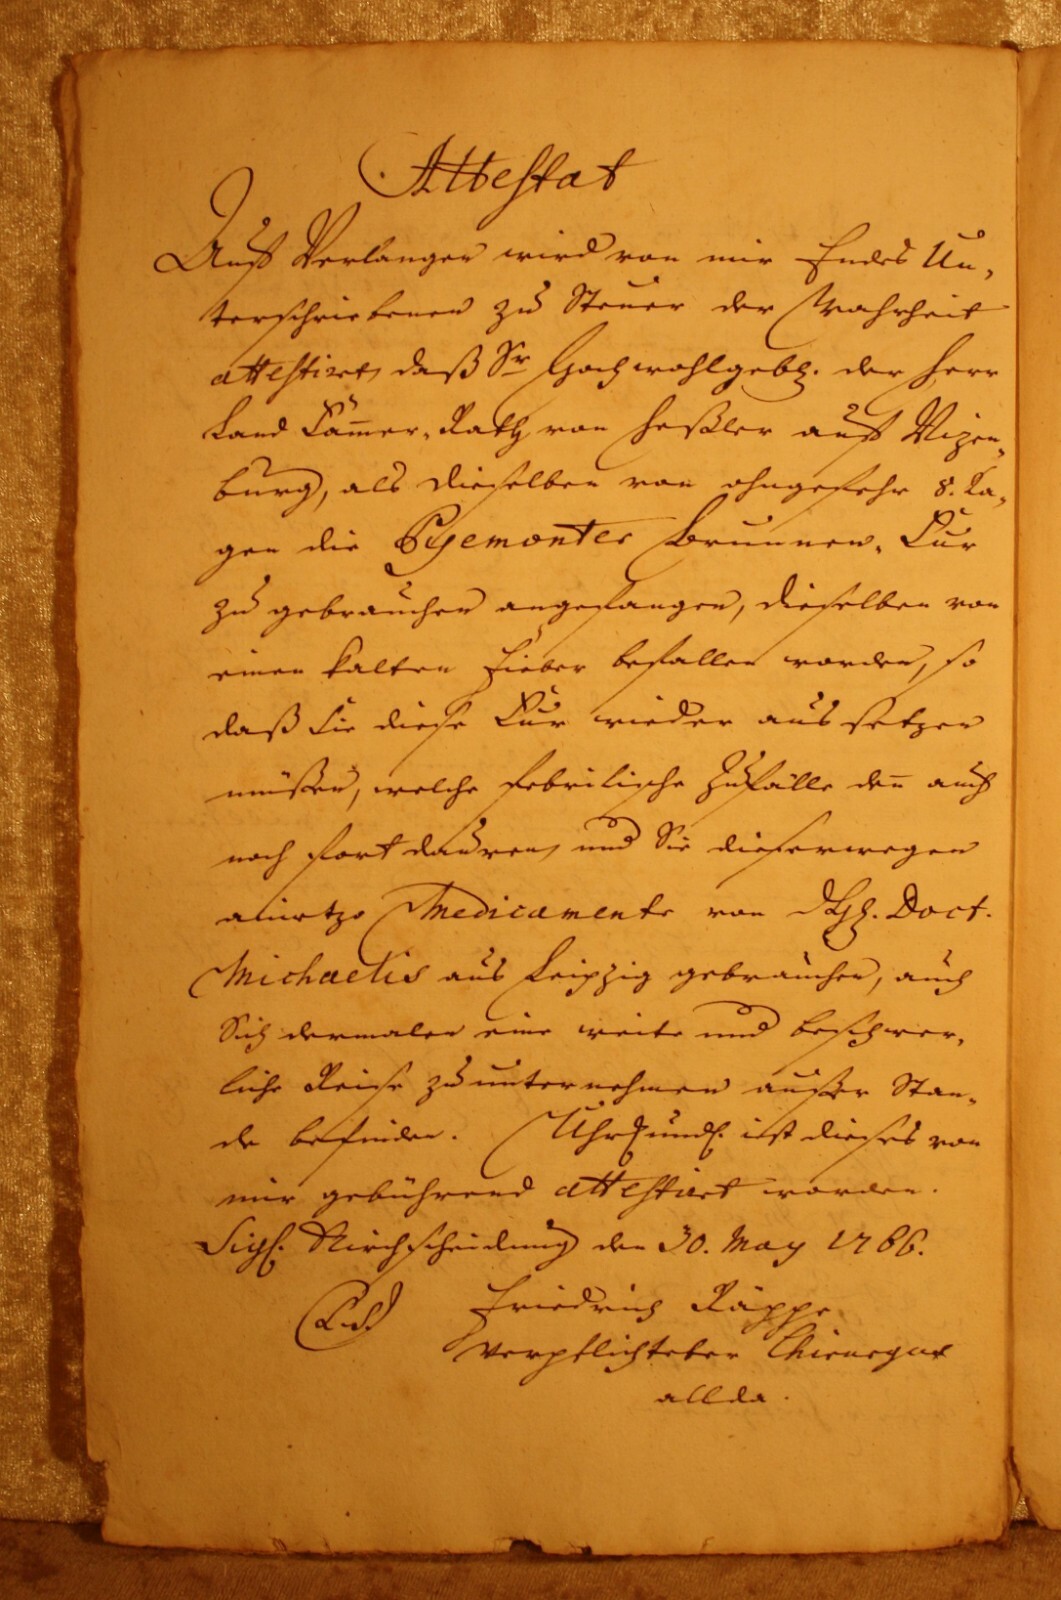 Attestat
Auf Verlangen wird von mir Endes Un-
terschriebenen zu Steuer der Wahrheit
attestiret, daß Sr Hochwohlgeb. der Herr
Land Cam̄er-Rath von Heßler auf Vizen-
burg, als dieselben vor ohngefehr 8. Ta-
gen die Pyrmonter Brunnen-Cur
zu gebrauchen angefangen, dieselben von
einen kalten Fieber befallen worden, so
daß Sie diese Cur wieder aussetzen
müßen, welche febrilische Zufälle den̄ auch
noch fort dauren, und Sie dieserwegen
annoch Medicamente von H. Doct.
Michaelis aus Leipzig gebrauchen, auch
Sich dermalen eine weite und beschwer-
liche Reise zu unternehmen außer Stan-
de befinden. Uhrkundl. ist dieses von
mir gebührend attestiret worden.
Sigl. Kirchscheidung den 30. May 1766.
(L.S.) Friedrich Räppe
verpflichteter Chirurgus
allda.